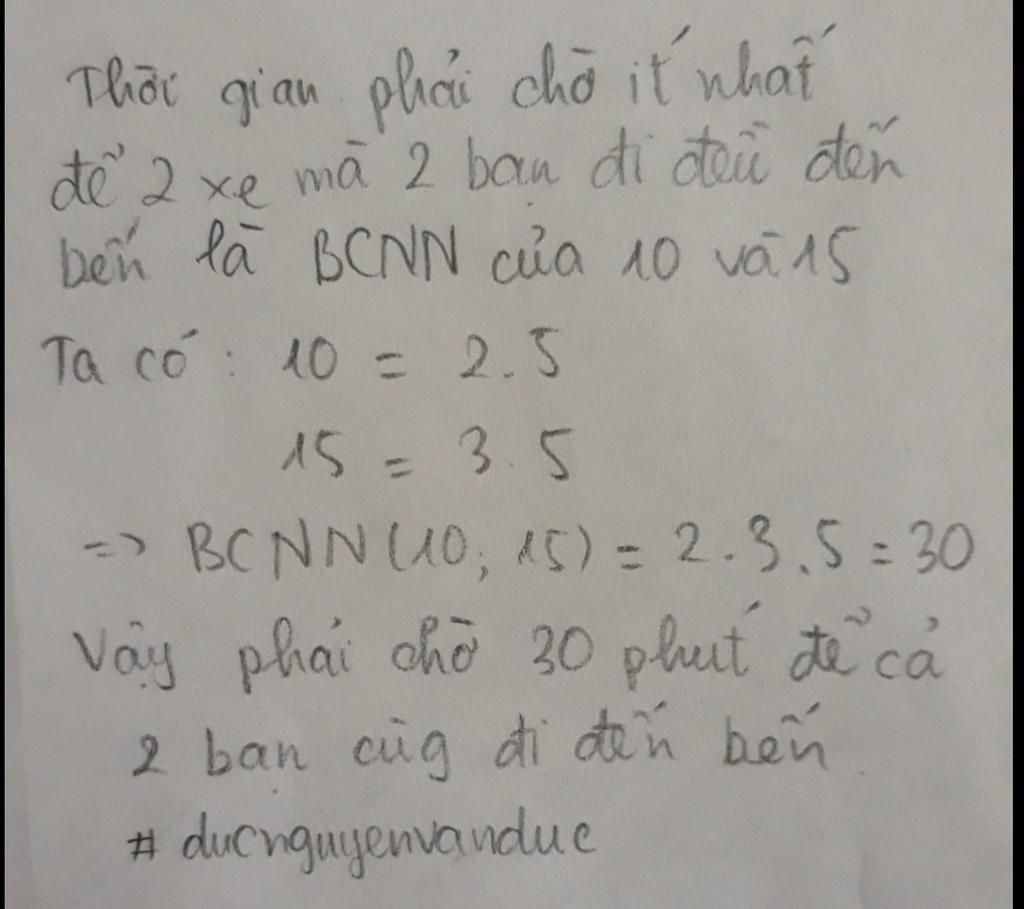 Thời gian phải chờ ít nhất
để 2 xe mà 2 bạn đi đều đến
bến là BCNN của 10 và 15
Ta có : 10 = 2.5
15 = 3.5
=> BCNN(10; 15) = 2.3.5 = 30
Vậy phải chờ 30 phút để cả
2 bạn cùg đi đến bến
# ducnguyenvanduc